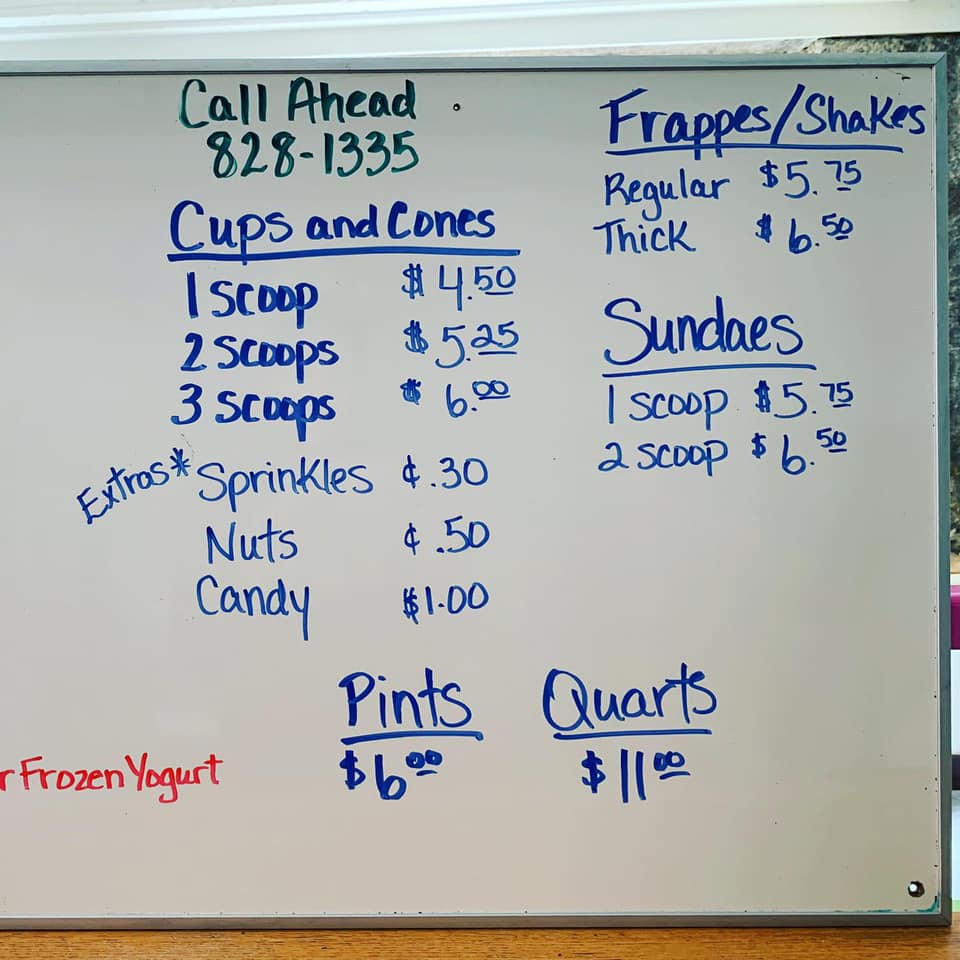 Call Ahead
828-1335
Cups and Cones
1 scoop $4.50
2 scoops $5.25
3 scoops $6.00
Extras* Sprinkles ¢.30
Nuts ¢.50
Candy $1.00
Frappes/Shakes
Regular $5.75
Thick $6.50
Sundaes
1 scoop $5.75
2 scoop $6.50
Pints
$6.00
Quarts
$11.00
r Frozen Yogurt